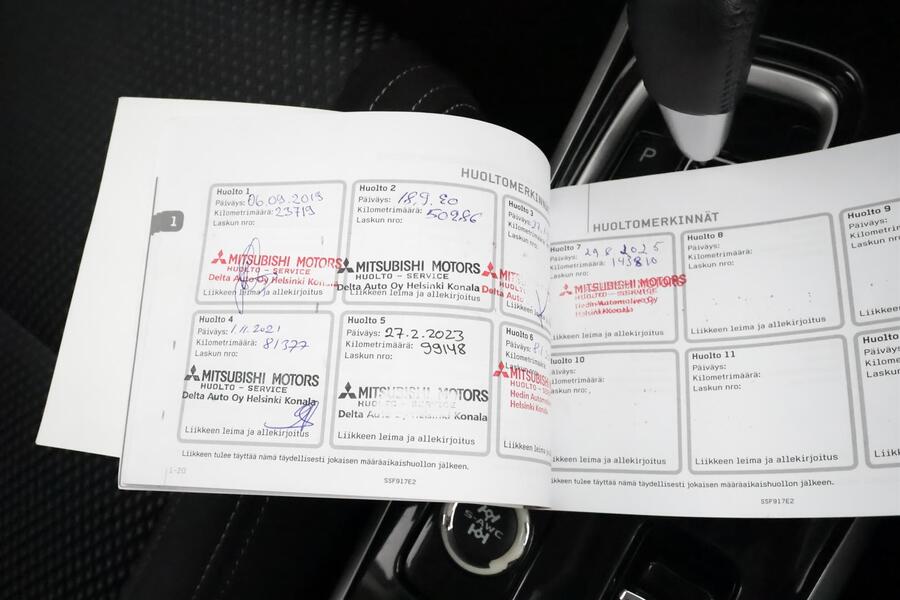 HUOLTOMERKINNÄT
1
Huolto 1
Päiväys: 06.09.2019
Kilometrimäärä: 23719
Laskun nro:
MITSUBISHI MOTORS
HUOLTO - SERVICE
Delta Auto Oy Helsinki Konala
Liikkeen leima ja allekirjoitus
Huolto 2
Päiväys: 18.9.20
Kilometrimäärä: 50286
Laskun nro:
MITSUBISHI MOTORS
HUOLTO - SERVICE
Delta Auto Oy Helsinki Konala
Liikkeen leima ja allekirjoitus
Huolto 3
Päiväys:
Kilometri
Laskun nro:
Delta Auto
Liikkeen
Huolto 4
Päiväys: 1.11.2021
Kilometrimäärä: 81377
Laskun nro:
MITSUBISHI MOTORS
HUOLTO - SERVICE
Delta Auto Oy Helsinki Konala
Liikkeen leima ja allekirjoitus
Huolto 5
Päiväys: 27.2.2023
Kilometrimäärä: 99148
Laskun nro:
MITSUBISHI MOTORS
HUOLTO - SERVICE
Delta Auto Oy Helsinki Konala
Liikkeen leima ja allekirjoitus
Huolto 6
Päiväys:
Laskun
MITSUBISHI
Hedin Autom
Helsinki Kon
Liikkeen
Liikkeen tulee täyttää nämä täydellisesti jokaisen määräaikaishuollon jälkeen.
1-20
SSF917E2
HUOLTOMERKINNÄT
Huolto 7
Päiväys: 29 8 2025
Kilometrimäärä: 143810
Laskun nro:
MITSUBISHI MOTORS
HUOLTO - SERVICE
Hedin Automotive Oy
Liikkeen leima ja allekirjoitus
Huolto 8
Päiväys:
Kilometrimäärä:
Laskun nro:
Liikkeen leima ja allekirjoitus
Huolto 9
Päiväys:
Kilometri
Laskun nro
Liikkeen
10
Päiväys:
Kilometrimäärä:
Laskun nro:
Liikkeen leima ja allekirjoitus
Huolto 11
Päiväys:
Kilometrimäärä:
Laskun nro:
Liikkeen leima ja allekirjoitus
Huolto
Päiväys
Kilomet
Laskun
Liikke
tulee täyttää nämä täydellisesti jokaisen määräaikaishuollon jälkeen.
SSF917E2
P
S-AWC